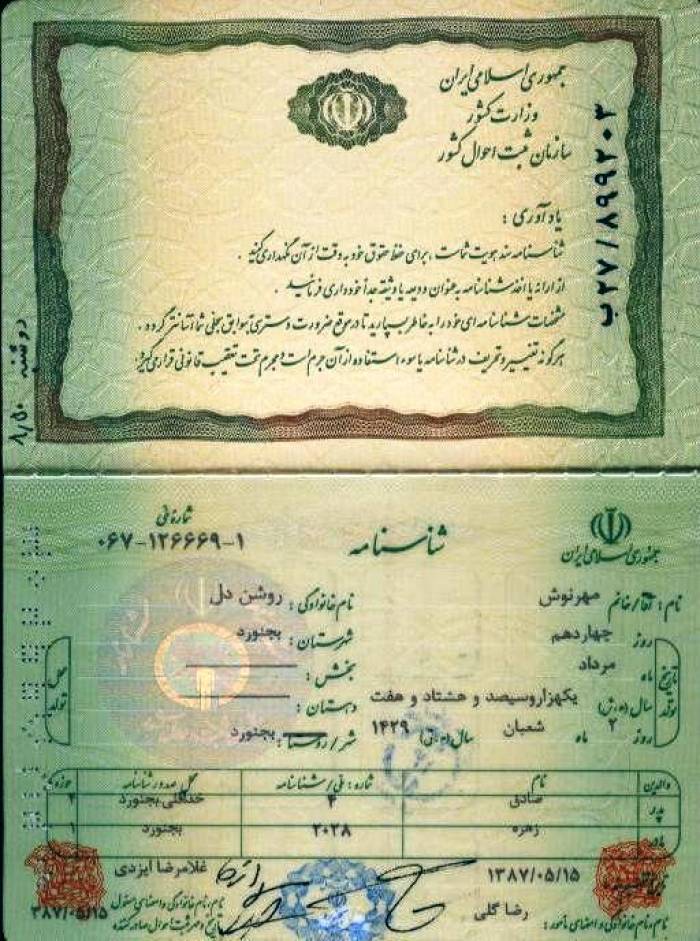 جمهوری اسلامی ایران
وزارت کشور
سازمان ثبت احوال کشور
ب۲۷/۸۹۹۲۰۲
یادآوری :
شناسنامه سند هویت شماست ، برای حفظ حقوق خود به دقت از آن نگهداری کنید .
از ارائه یا اخذ شناسنامه به عنوان ودیعه یا وثیقه جداً خودداری فرمائید .
مشخصات شناسنامه ای خود را به خاطر بسپارید تا در موقع ضرورت دسترسی به سوابق سجلی شما آسانتر گردد .
هرگونه تغییر و تحریف در شناسنامه یا سوء استفاده از آن جرم است و مجرم تحت تعقیب قانونی قرار می گیرد .
جمهوری اسلامی ایران
شناسنامه
شماره ملی
۰۶۷-۱۲۶۶۶۹-۱
نام : آقا/خانم مهرنوش
نام خانوادگی : روشن دل
تاریخ تولد
روز چهاردهم
ماه مرداد
سال (ه.ش) یکهزاروسیصد و هشتاد و هفت
روز ۲ ماه شعبان سال (ه.ق) ۱۴۲۹
محل تولد
شهرستان : بجنورد
بخش :
دهستان :
شهر/روستا : بجنورد
والدین نام شماره : ملی/شناسنامه محل صدور شناسنامه حوزه
پدر صادق ۴ بجنورد ۲
مادر زهره ۲۰۲۸ بجنورد ۱
۱۳۸۷/۰۵/۱۵
غلامرضا ایزدی
رضا گلی
نام و نام خانوادگی و امضای مأمور :
نام و نام خانوادگی و امضای مسئول
تاریخ و مهر ثبت احوال صادرکننده